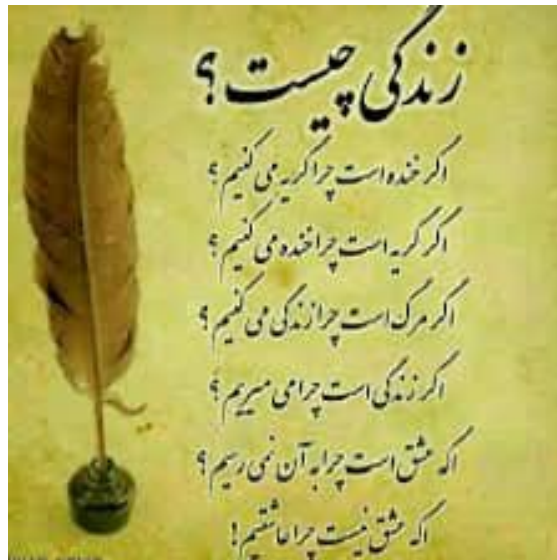 زندگی چیست؟
اگر خنده است چرا گریه می کنیم ؟
اگر گریه است چرا خنده می کنیم ؟
اگر مرگ است چرا زندگی می کنیم ؟
اگر زندگی است چرا می میریم ؟
اگه عشق است چرا به آن نمی رسیم ؟
اگه عشق نیست چرا عاشقیم !